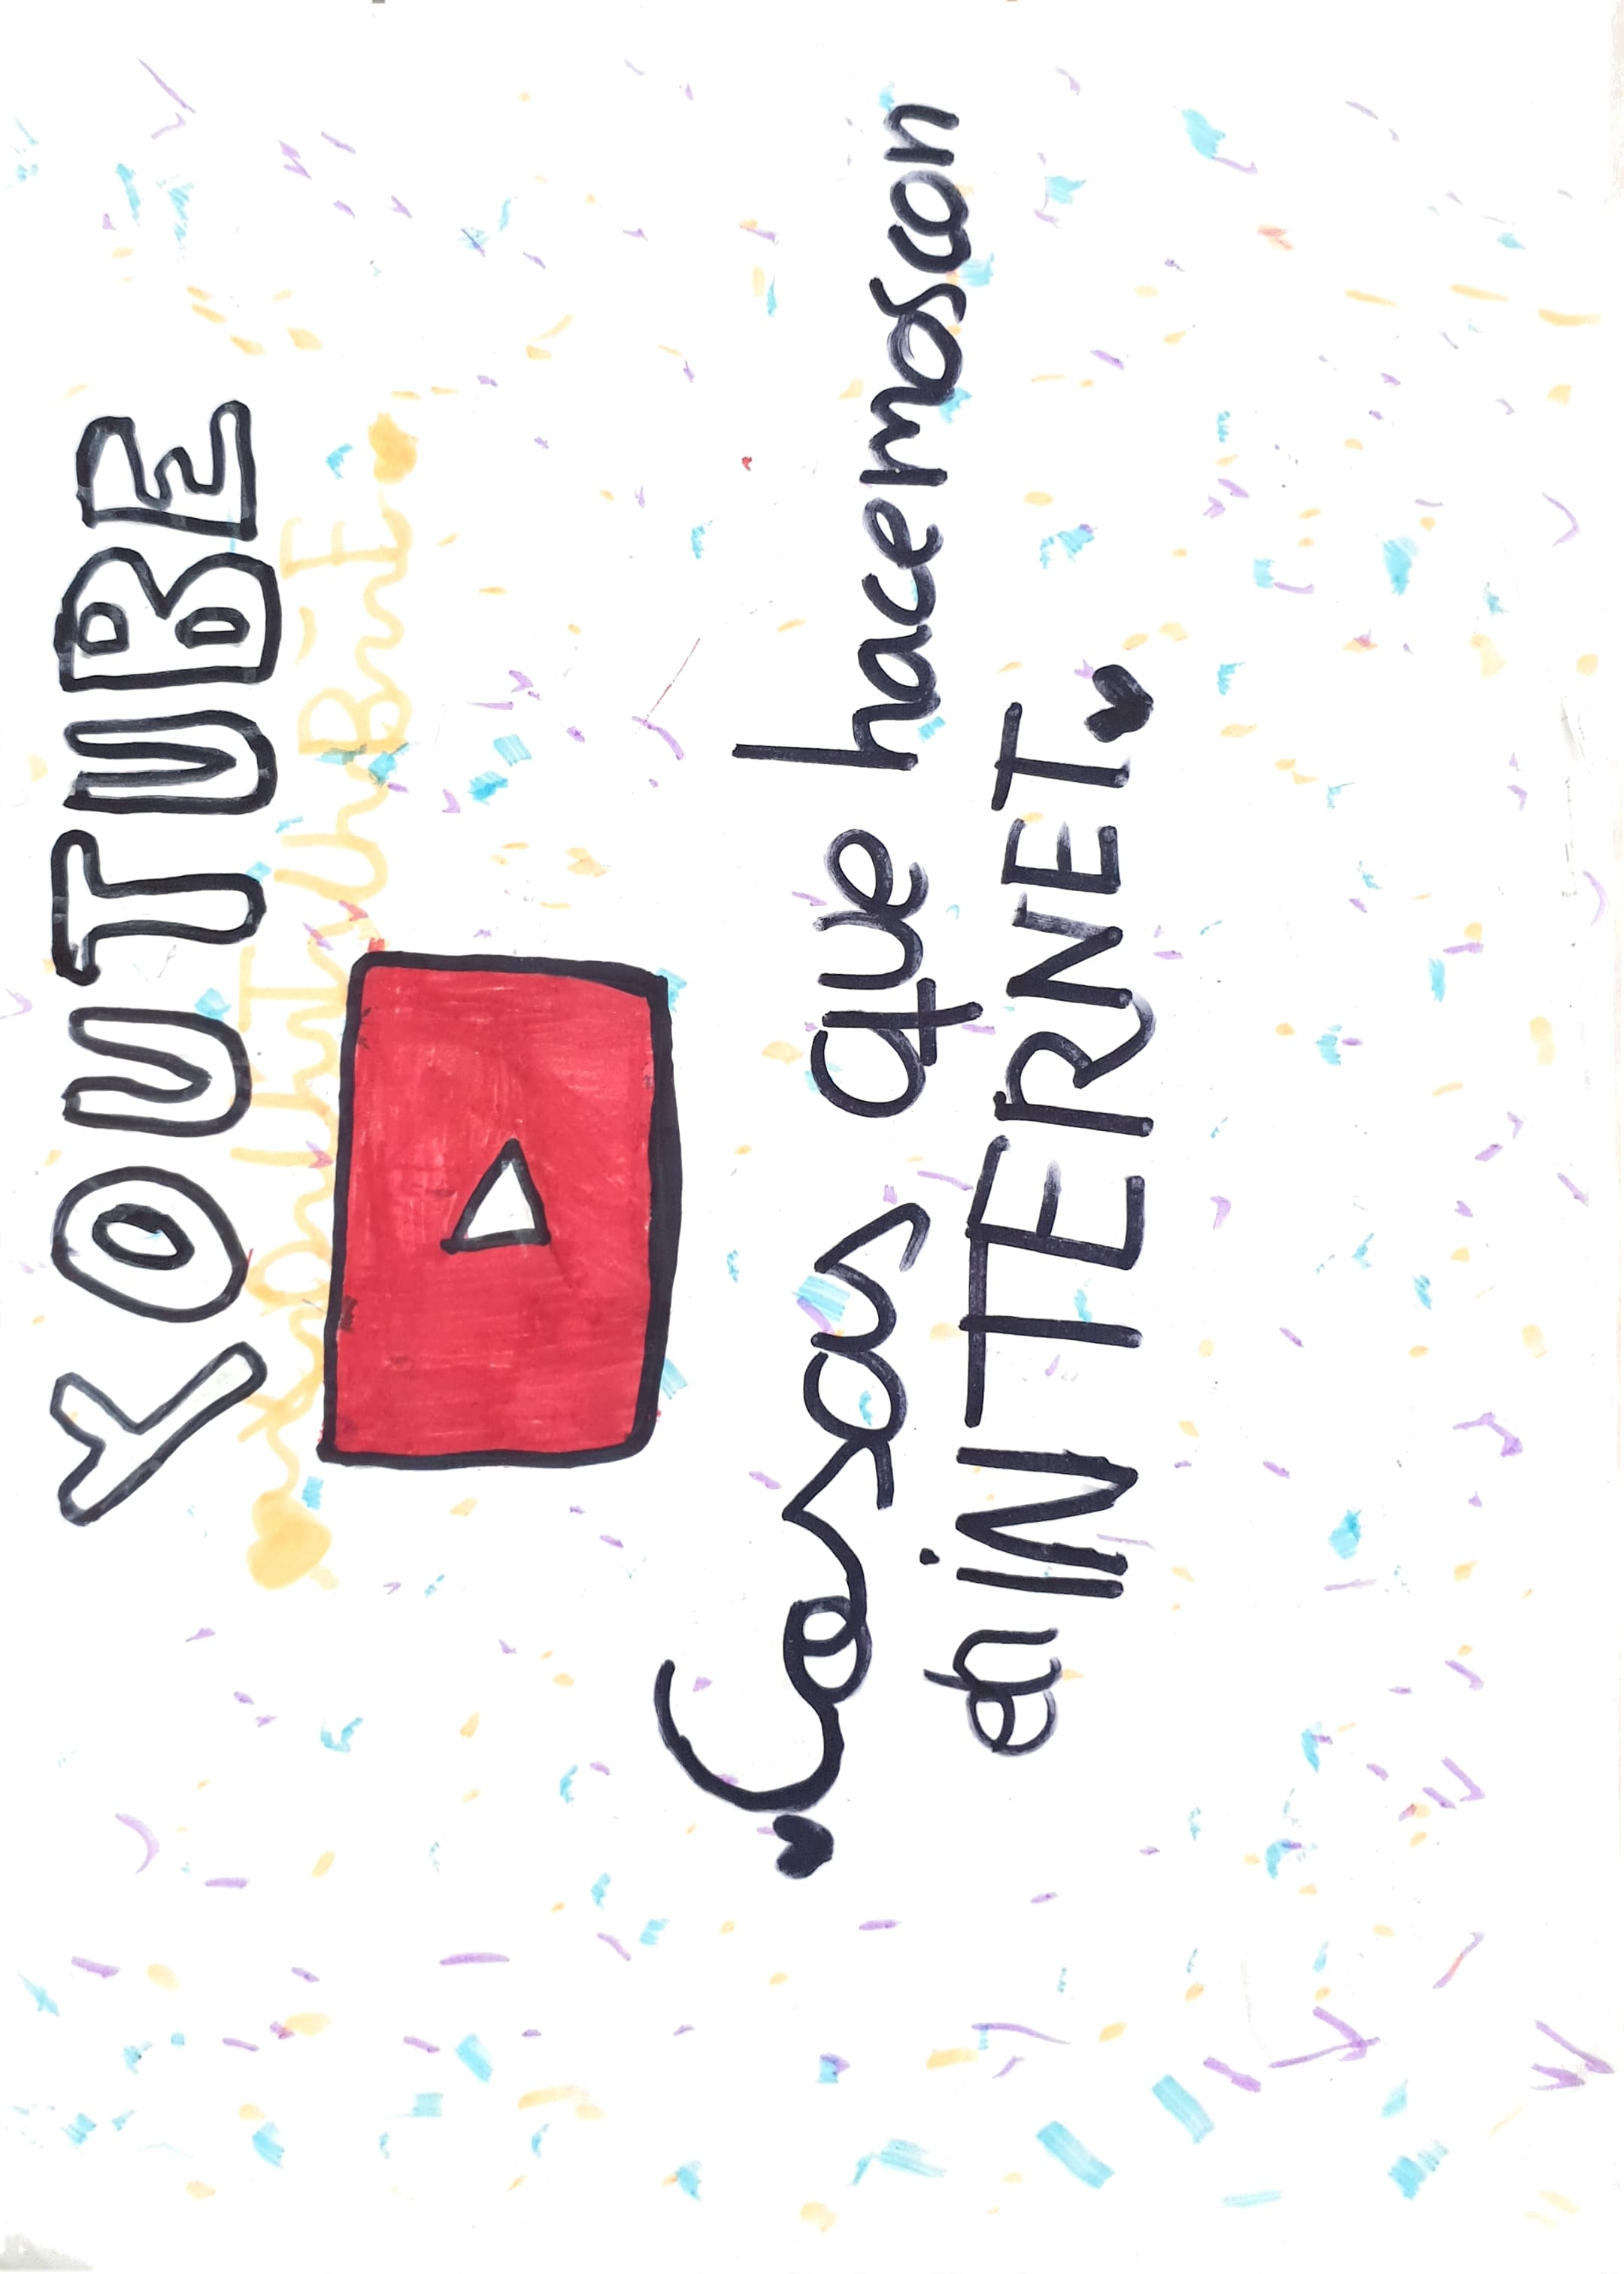 YOUTUBE
Cosas que hacemos con
en iNTERNET